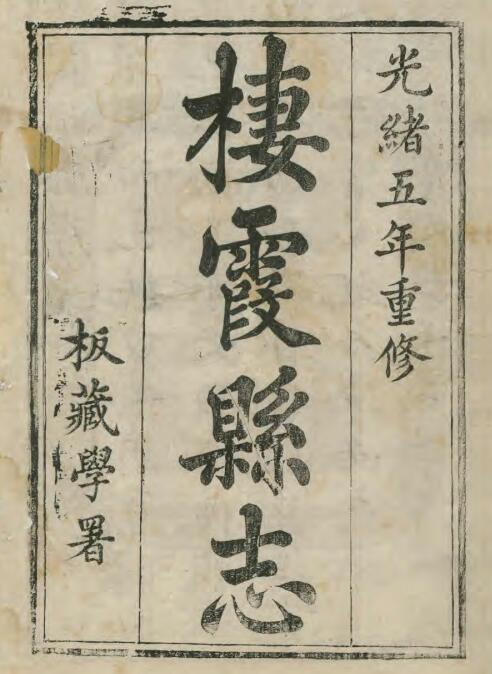 光緒五年重修
棲霞縣志
板藏學署